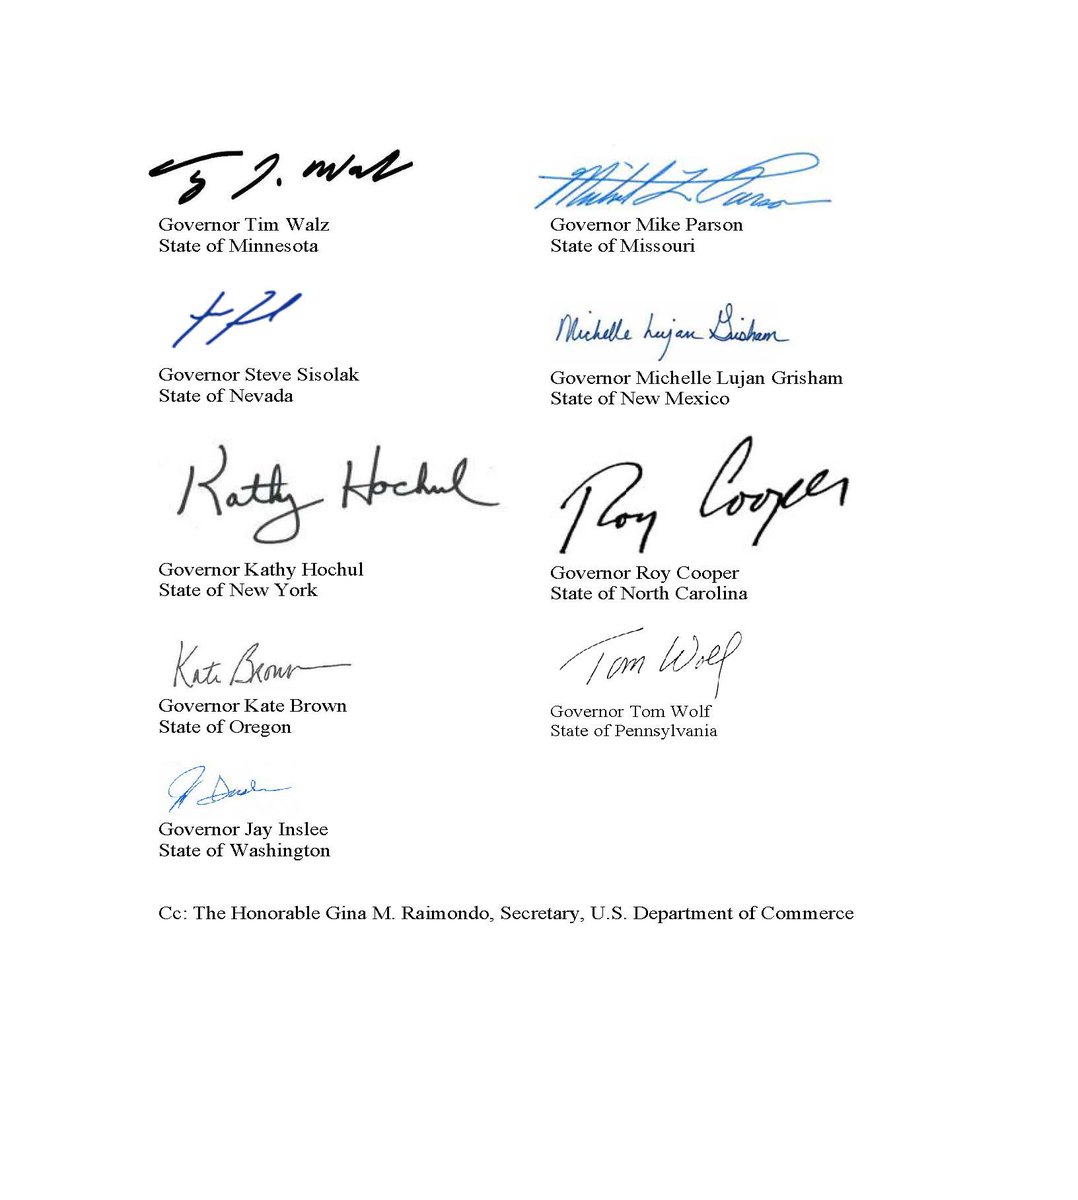 Ty J. Walz
Governor Tim Walz
State of Minnesota
Michael L. Parson
Governor Mike Parson
State of Missouri
Governor Steve Sisolak
State of Nevada
Michelle Lujan Grisham
Governor Michelle Lujan Grisham
State of New Mexico
Kathy Hochul
Governor Kathy Hochul
State of New York
Roy Cooper
Governor Roy Cooper
State of North Carolina
Kate Brown
Governor Kate Brown
State of Oregon
Tom Wolf
Governor Tom Wolf
State of Pennsylvania
Governor Jay Inslee
State of Washington
Cc: The Honorable Gina M. Raimondo, Secretary, U.S. Department of Commerce